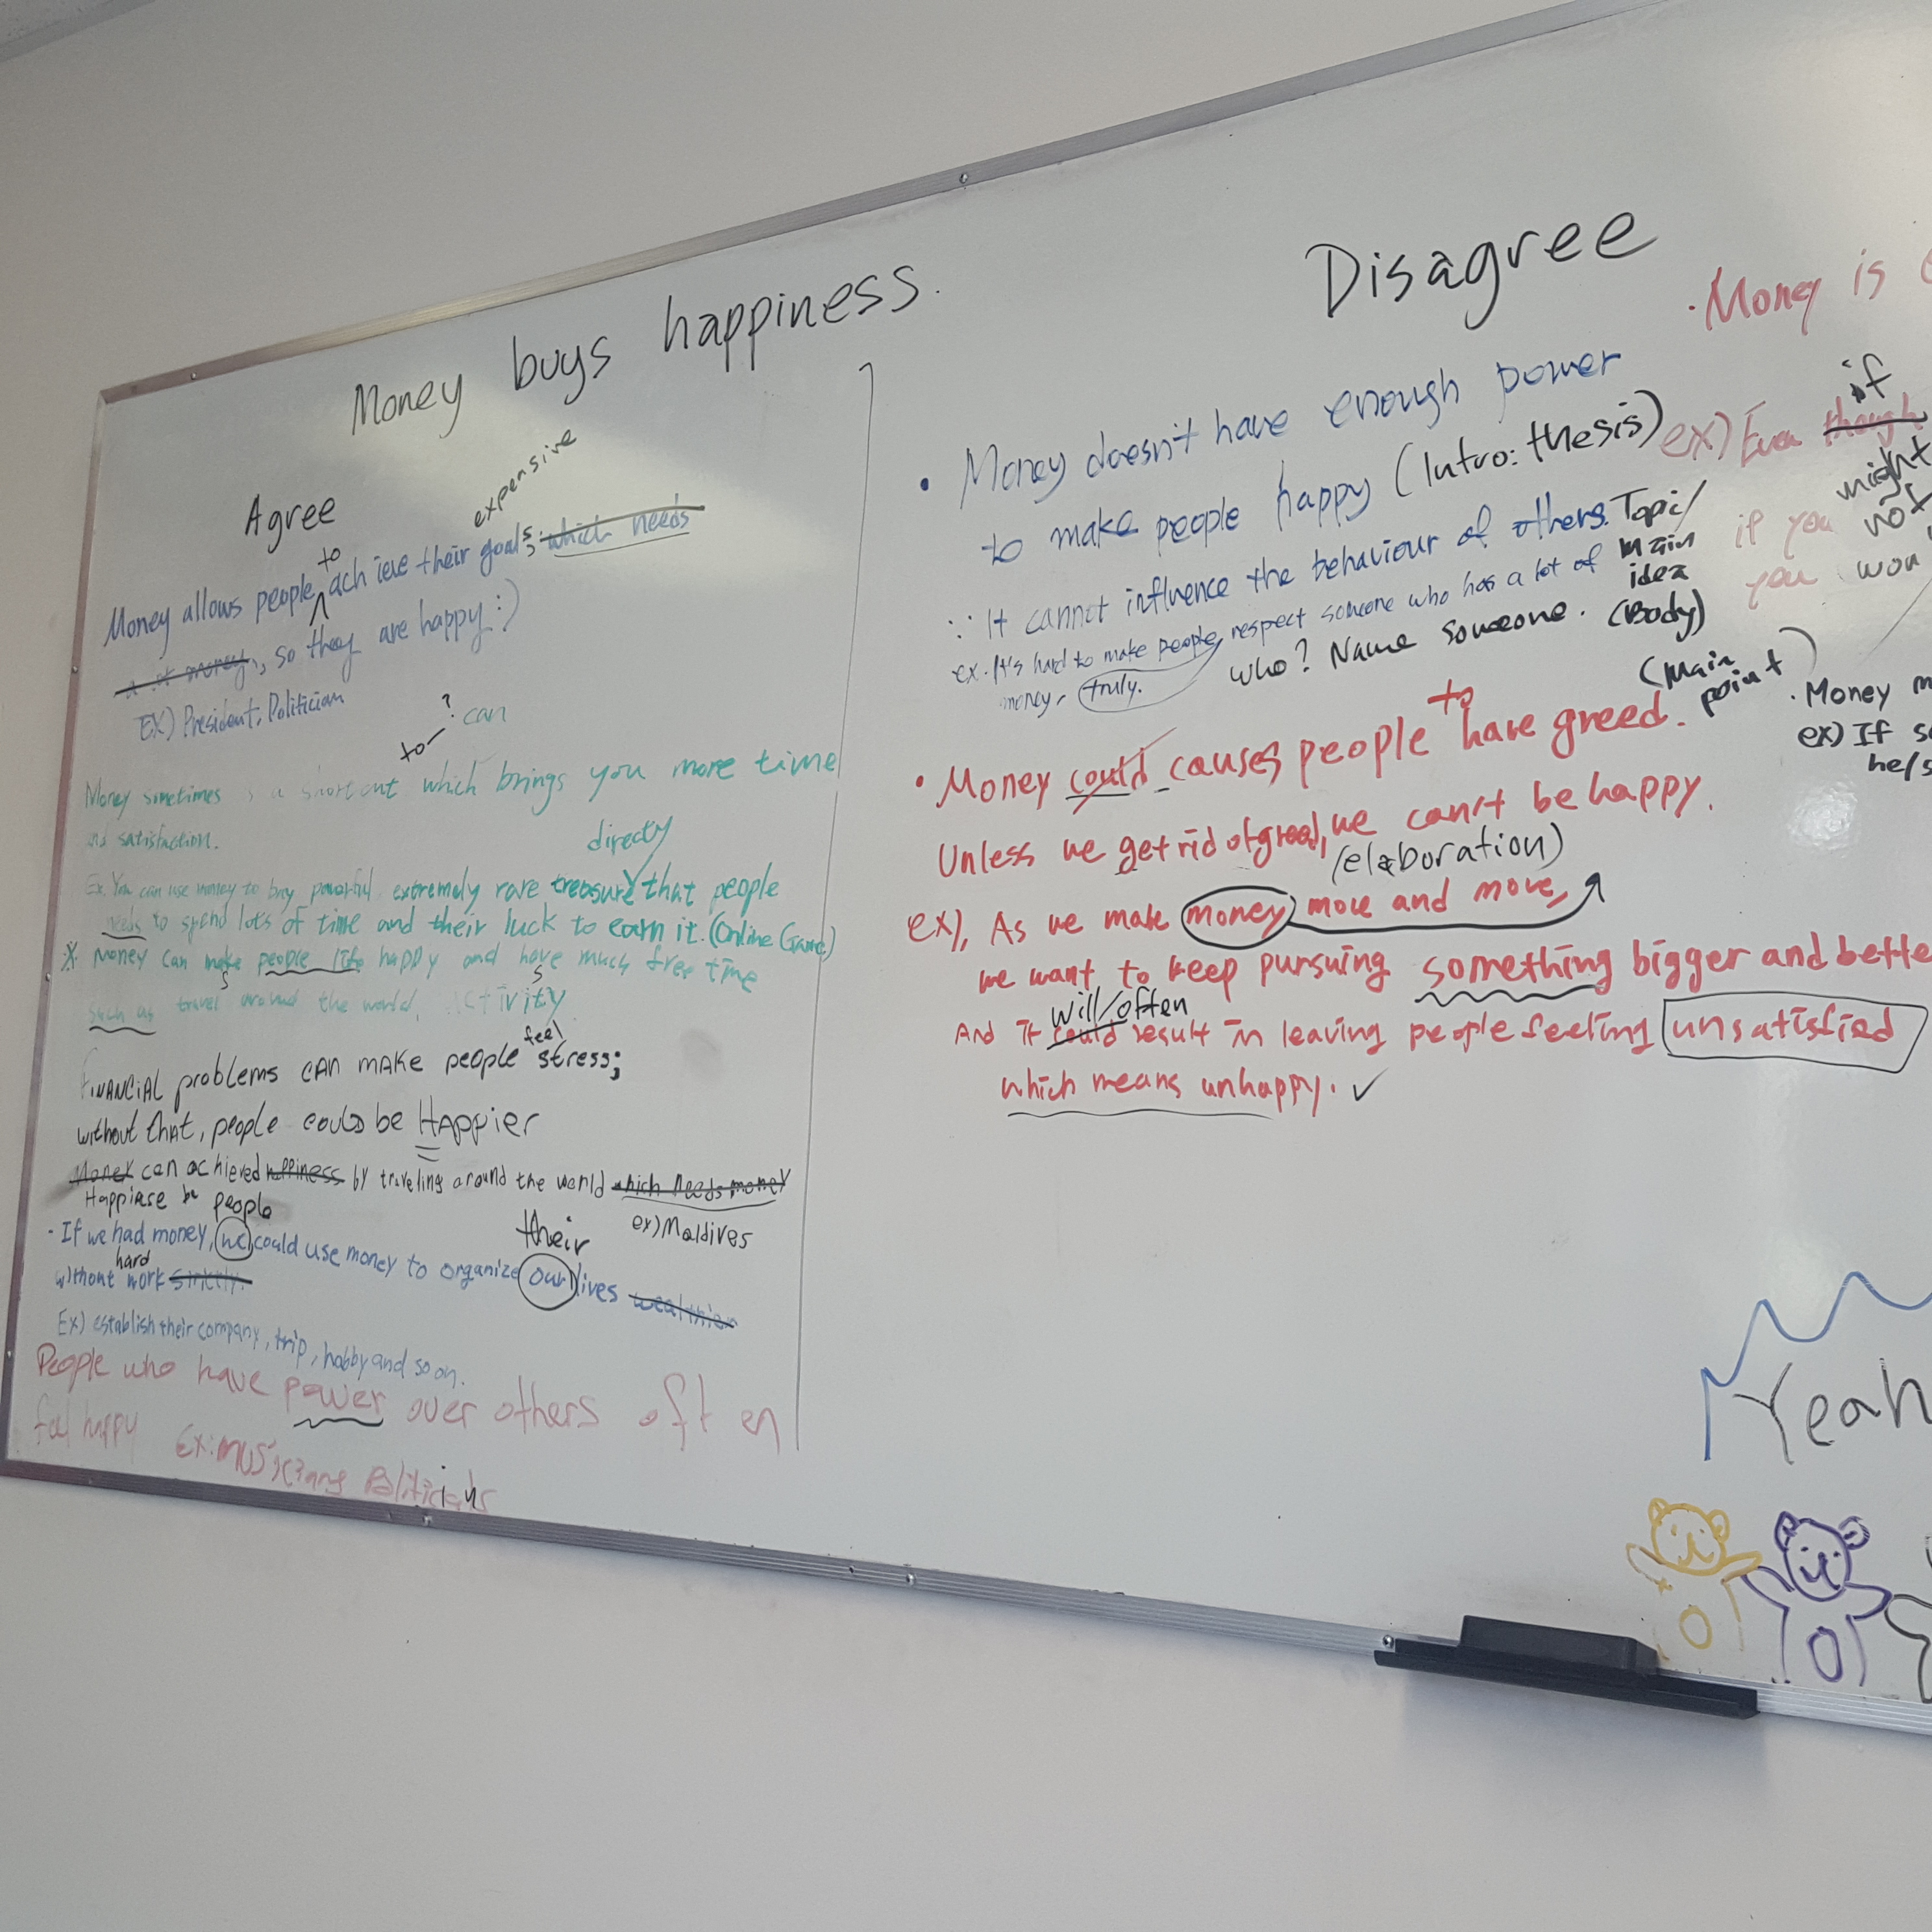 Money buys happiness.
Agree
expensive
to
Money allows people achieve their goals, which needs
money, so they are happy :)
EX) President, Politician
to ? can
Money sometimes is a shortcut which brings you more time
and satisfaction.
directly
Ex. You can use money to buy powerful extremely rare treasure that people
needs to spend lots of time and their luck to earn it. (Online Game)
※ Money can make people life happy and have much free time
s s
such as travel around the world, activity
feel
Financial problems can make people stress;
without that, people could be Happier
Money can achieved happiness by traveling around the world which needs money
Happinese be people
ex) Maldives
their
- If we had money, we could use money to organize our lives wealthier
hard
without work strictly.
Ex) establish their company, trip, hobby and so on.
People who have power over others often
feel happy Ex: musicians Politicians
Disagree
• Money doesn't have enough power
to make people happy (Intro: thesis)
∵ It cannot influence the behaviour of others. Topic/
main
idea
(Body)
ex. It's hard to make people respect someone who has a lot of
money, truly.
who? Name someone.
to
(main
point)
• Money could causes people have greed.
Unless we get rid of greed, we can't be happy.
(elaboration)
ex), As we make money more and more,
we want to keep pursuing something bigger and bette
will/often
And it could result in leaving people feeling unsatisfied
which means unhappy. ✓
• Money is
if
ex) Even though
might
if you not
you wou
• Money m
ex) If s
he/s
Yeah